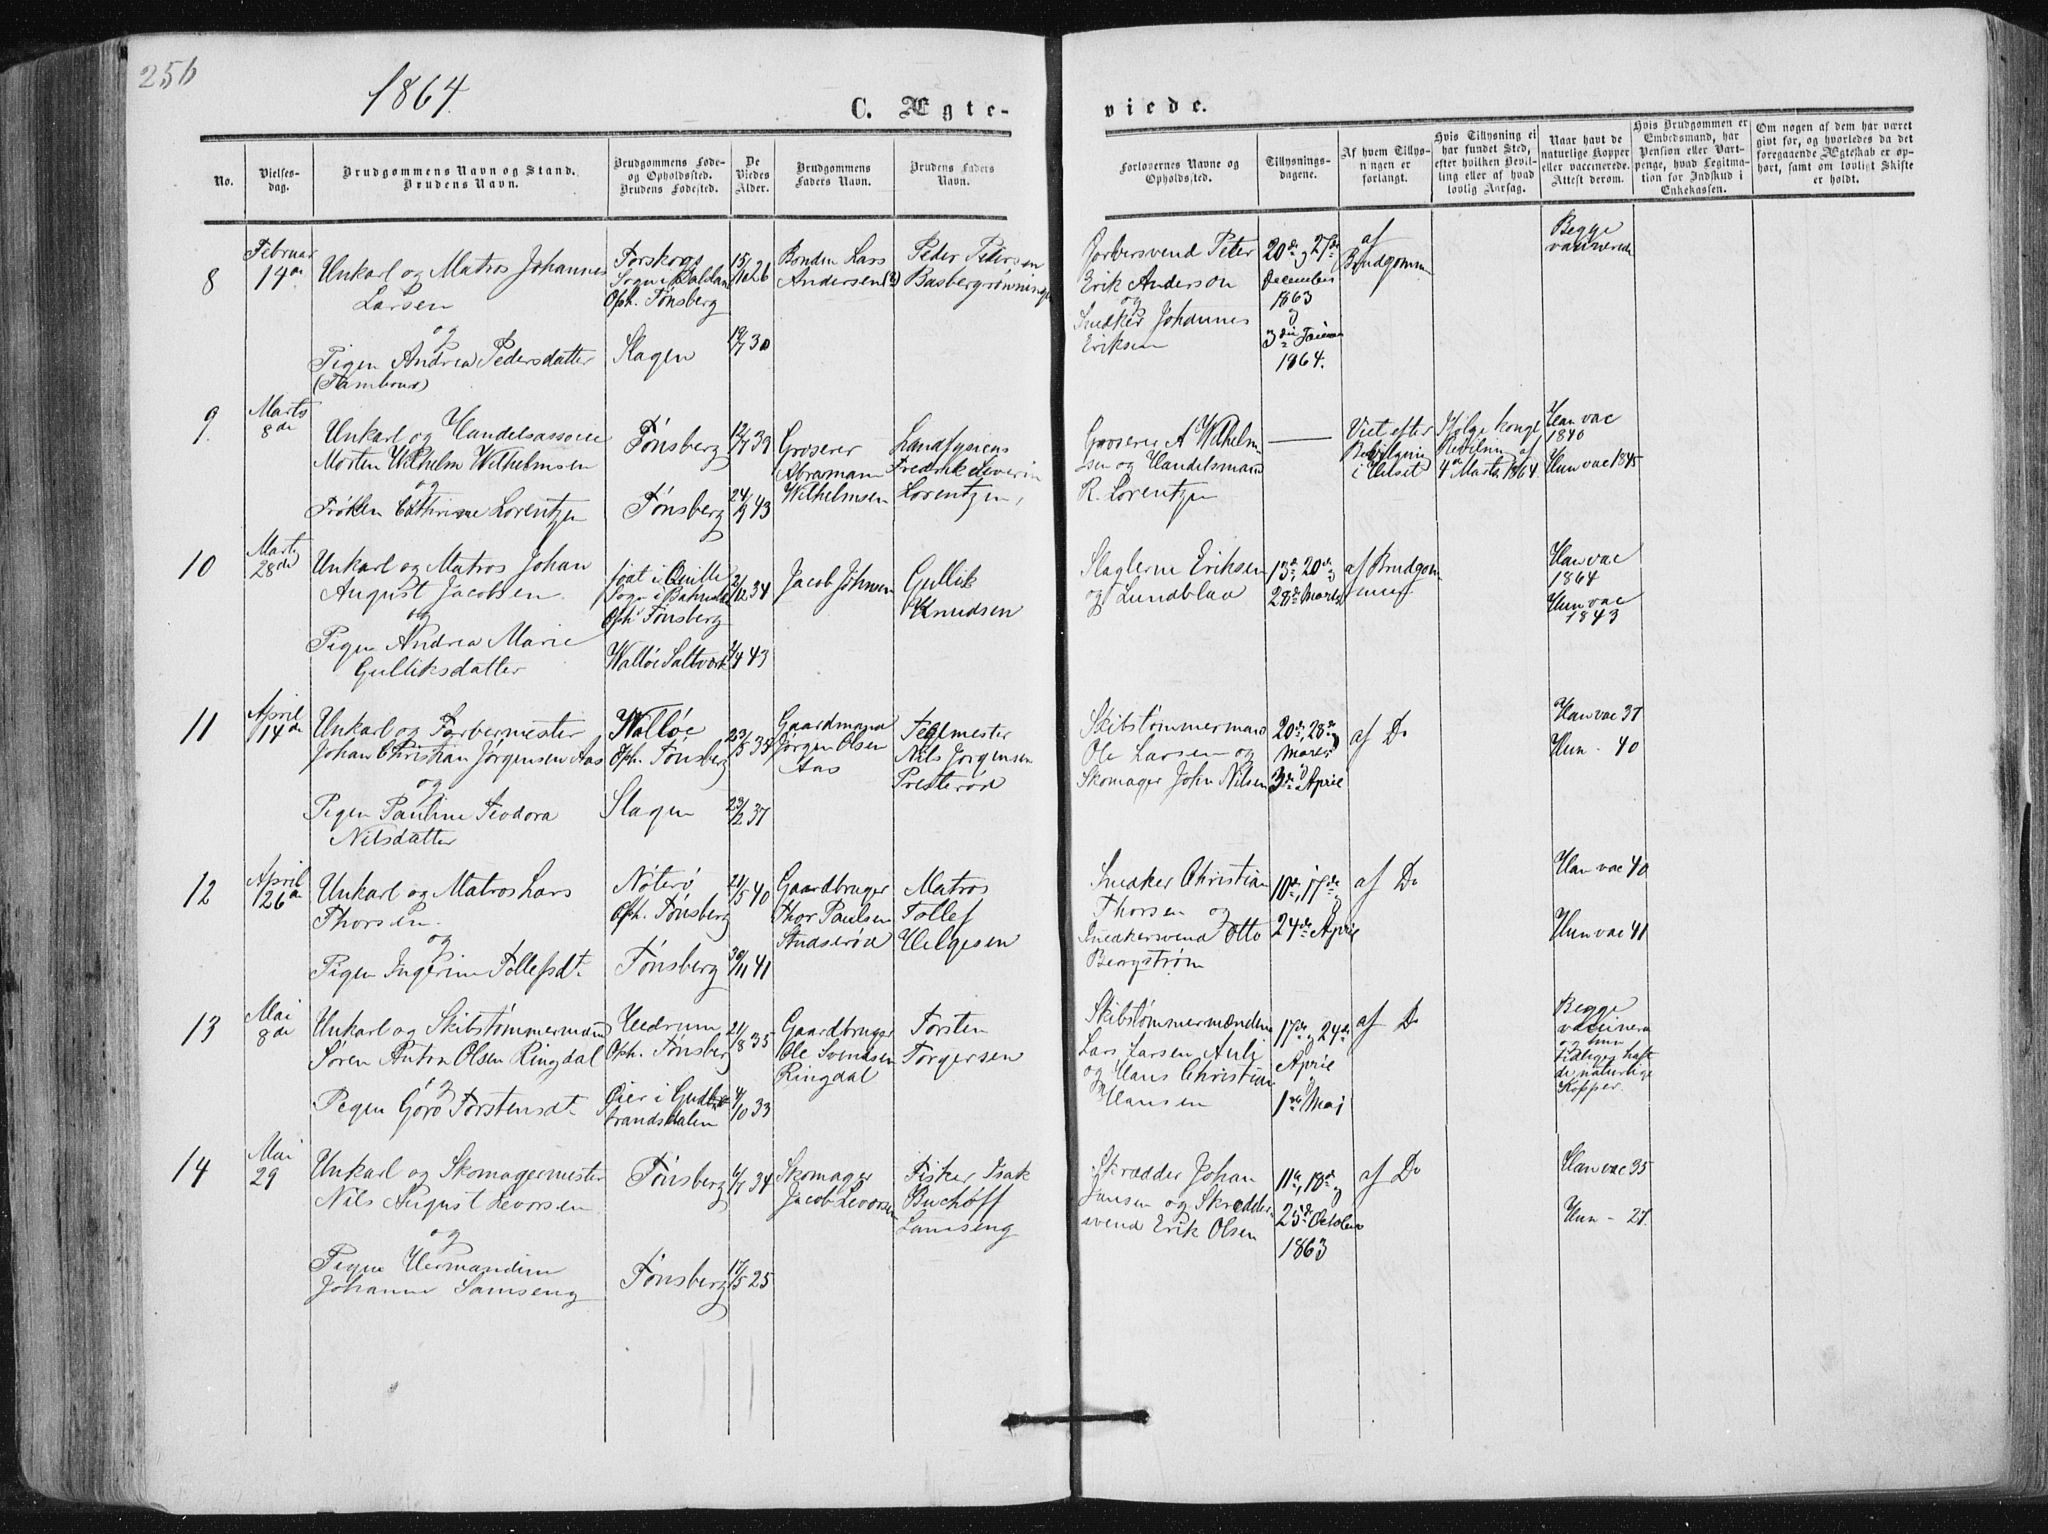 256
1864
C. Ægte-
viede.
No.
Vielses-
dag.
Brudgommens Navn og Stand.
Brudens Navn.
Brudgommens Føde-
og Opholdssted.
Brudens Fødested.
De
Viedes
Alder.
Brudgommens
Faders Navn.
Brudens Faders
Navn.
Forlovernes Navne og
Opholdssted.
Tillysnings-
dagene.
Af hvem Tillys-
ningen er
forlangt.
Hvis Tillysning ei
har fundet Sted,
efter hvilken Bevil-
ling eller af hvad
lovlig Aarsag.
Naar havt de
naturlige Kopper
eller vaccinerede.
Attest derom.
Hvis Brudgommen er
Embedsmand, har
Pension eller Vart-
penge, hvad Legitma-
tion for Indskud i
Enkekassen.
Om nogen af dem har været
givt for, og hvorledes da det
foregaaende Ægteskab er op-
hørt, samt om lovligt Skifte
er holdt.
8
Februar
14de
Unkarl og Matros Johannes
Larsen
og
Pigen Andrea Pedersdatter
(Tambour)
Forskogs
Sogn i Dalsland
Oph. Tønsberg
Slagen
15/10 26
19/7 30
Bonden Lars
Andersen (?)
Peder Pedersen
Basbergrønningen
Peter
Erik Anderson
og
Snedker Johannes
Eriksen
20de og 27de
December
1863
og
3die Januar
1864.
af
Brudgommen
Begge
vaccinerede
9
Marts
8de
Unkarl og Handelsassocie
Morten Wilhelm Wilhelmsen
og
Frøken Cathrine Lorentzen
Tønsberg
Tønsberg
12/7 39
24/9 43
Groserer
Abraham
Wilhelmsen
Landfysicus
Fredrik Severin
Lorentzen,
Groserer A Wilhelm-
sen og Handelsmand
R. Lorentzen
Viet efter
Bevilgning
i Huset
Ifølge kongl
Bevilling af
4de Marts 1864.
Han vac
1840
Hun vac 1845
10
Marts
28de
Unkarl og Matros Johan
August Jacobsen
og
Pigen Andrea Marie
Gulliksdatter
født i Quille
Sogn i Bahuslen
Oph. Tønsberg
Walløe Saltværk
2/12 34
/9 43
Jacob Johnsen
Gullik
Knudsen
Slagterne Eriksen
og Lundblad
13de, 20de og
28de Marts
af Brudgom-
men
Han vac
1864
Hun vac
1843
11
April
14de
Unkarl og Farbermester
Johan Christian Jørgensen Aas
og
Pigen Pauline Teodora
Nilsdatter
Walløe
Oph. Tønsberg
Slagen
23/5 35
23/2 37
Gaardmand
Jørgen Olsen
Aas
Teglmester
Nils Jørgensen
Presterød
Skibstømmermand
Ole Larsen og
Skomager John Nilsen
20de, 28de
Marts og
3de April
af Do
Han vac 37
Hun - 40
12
April
26de
Unkarl og Matros Lars
Thorsen
og
Pigen Ingerine Tollefsdt.
Nøterø
Oph. Tønsberg
Tønsberg
21/5 40
30/11 41
Gaardbruger
Thor Paulsen
Stadserød
Matros
Tollef
Helgesen
Snedker Christian
Thorsen og
Snedkersvend Otto
Bergstrøm
10de, 17de og
24de April
af Do
Han vac 40
Hun vac 41
13
Mai
8de
Unkarl og Skibstømmermand
Søren Anton Olsen Ringdal
og
Pigen Goro Torstensdt.
Hedrum
Oph. Tønsberg
Øier i Gudb-
brandsdalen
21/8 35
4/10 33
Gaardbruger
Ole Svendsen
Ringdal
Torsten
Torgersen
Skibstømmermændene
Lars Larsen Auli
og Hans Christian
Hansen
17de og 24de
April
og
1ste Mai
af Do
Begge
vaccinera
og hun
tidliger haft
de naturlige
Kopper.
14
Mai
29
Unkarl og Skomagermester
Nils August Levorsen
og
Pigen Hermandine
Johanne Samseng
Tønsberg
Tønsberg
6/7 34
17/5 25
Skomager
Jacob Levorsen
Fisker Isak
Buchhoff
Lamseng
Skrædder Johan
Jansen og Skrædder-
svend Erik Olsen
11te, 18de og
25de October
1863
af Do
Han vac 35
Hun - 27.